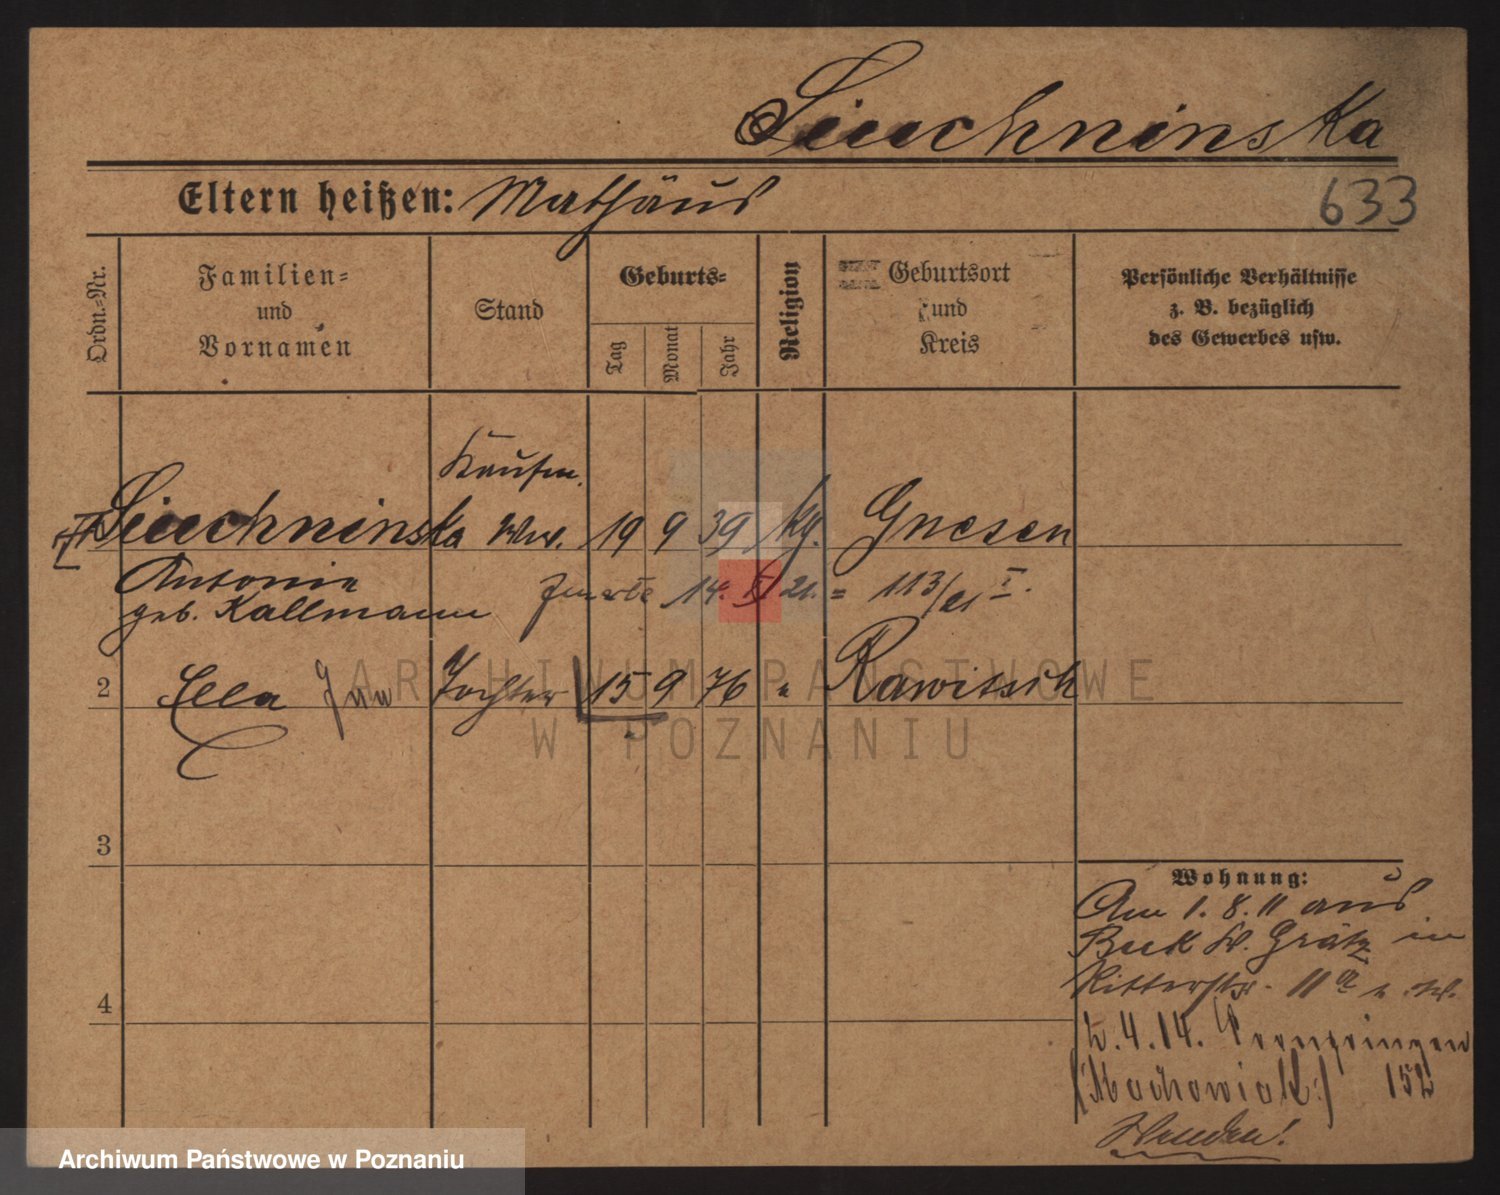 Siuchninska
Eltern heißen: Mathäus
633
Ordn.-Nr.
Familien-
und
Vornamen
Stand
Geburts-
Tag
Monat
Jahr
Religion
Geburtsort
und
Kreis
Persönliche Verhältnisse
z. B. bezüglich
des Gewerbes usw.
Kaufm.
Siuchninska Ww. 19 9 39 Gnesen
Antonie
geb. Kallmann 14. 21. = 113/21 I.
2 Ella Tochter 15 9 76 " Rawitsch
3
4
Wohnung:
Am 1. 8. 11 aus
Buk b. Grätz in
Ritterstr. 11a
2. 4. 14.
(Machowiak) 152
Wenden!
ARCHIWUM PAŃSTWOWE
W POZNANIU
Archiwum Państwowe w Poznaniu